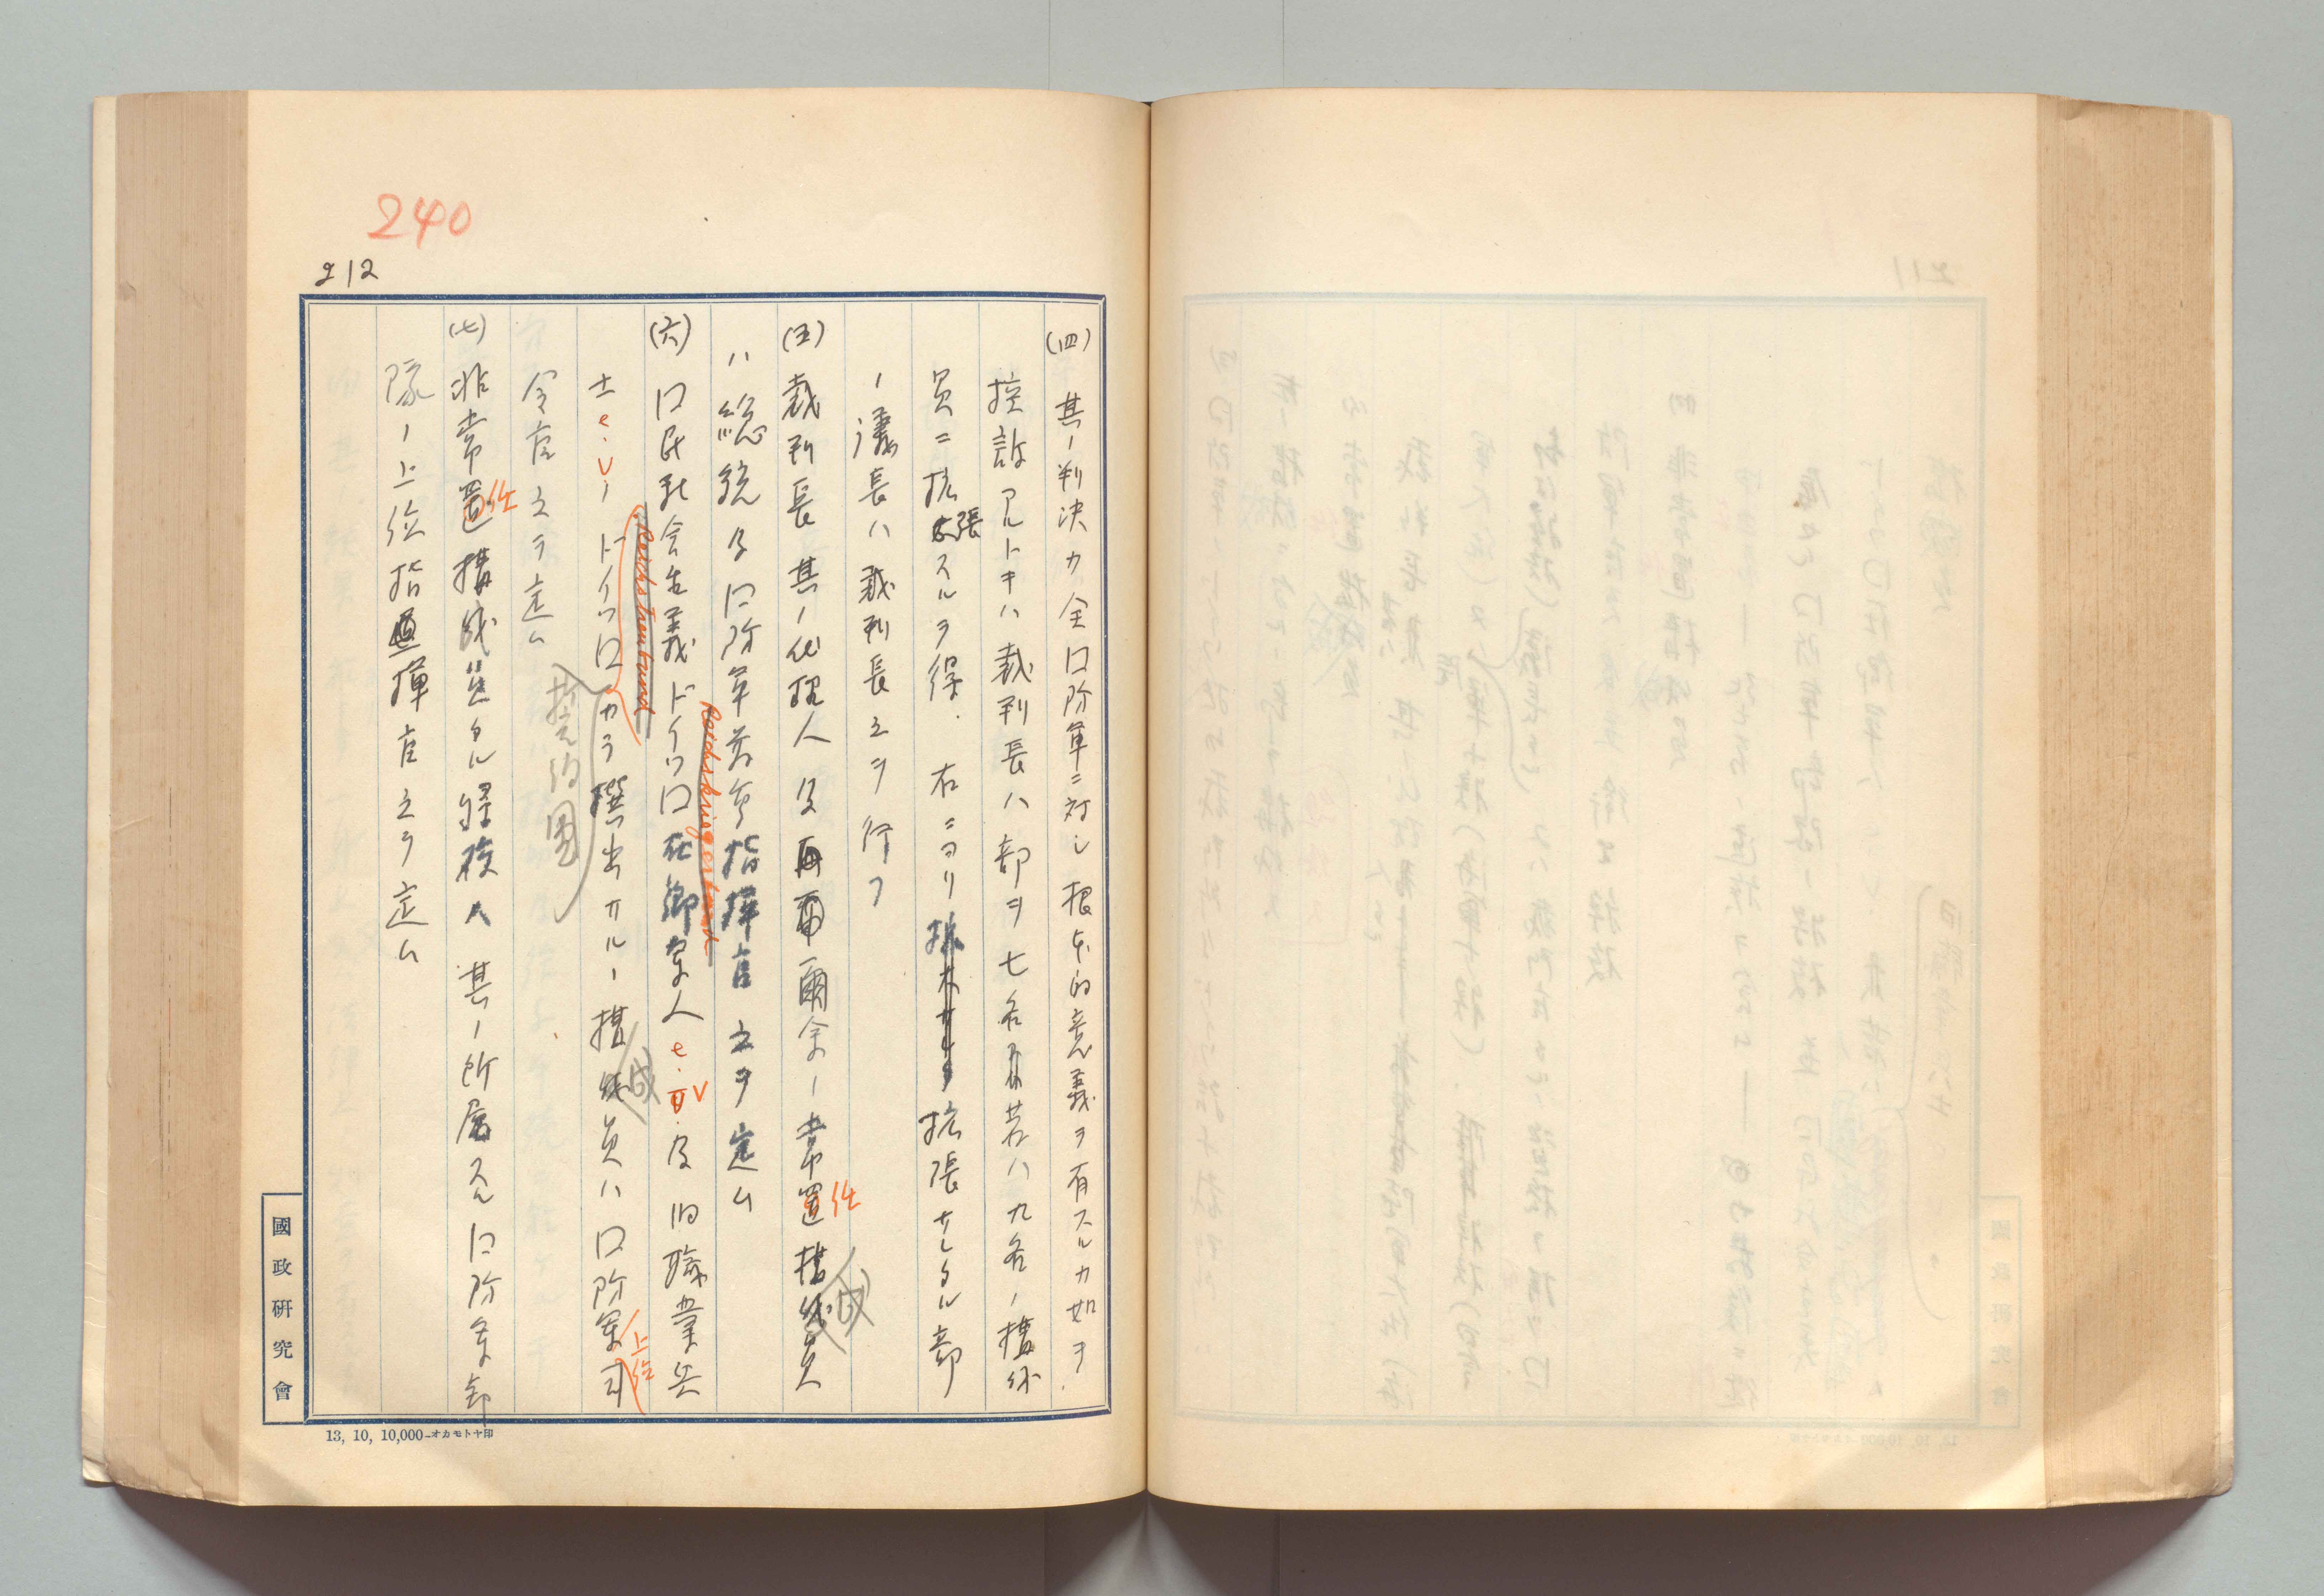 240
212
(四) 其ノ判決カ全口防軍ニ対シ根本的意義ヲ有スルカ如ヲ
控訴アルトキハ裁判長ハ部ヲ七名若ハ九名ノ構成
員ニ拡張スルヲ得. 右ニヨリ拡張サレタル部
ノ議長ハ裁判長之ヲ行フ
(五) 裁判長其ノ代理人及爾余ノ常置任構成員
ハ総統及口防軍最高指揮官之ヲ定ム
(六) 口民社会主義ドイツ口在郷軍人e.V.及旧職業兵
Reichskriegerbund
士e.V.ノドイツ口カラ撰出サルノ構成員ハ口防軍司
Reichstreubund
上位
令官之ヲ定ム
(七) 非常置任構成員タル将校ハ其ノ所属スル口防軍部
隊ノ上位指揮官之ヲ定ム
國政研究會
13, 10, 10,000-オカモトヤ印